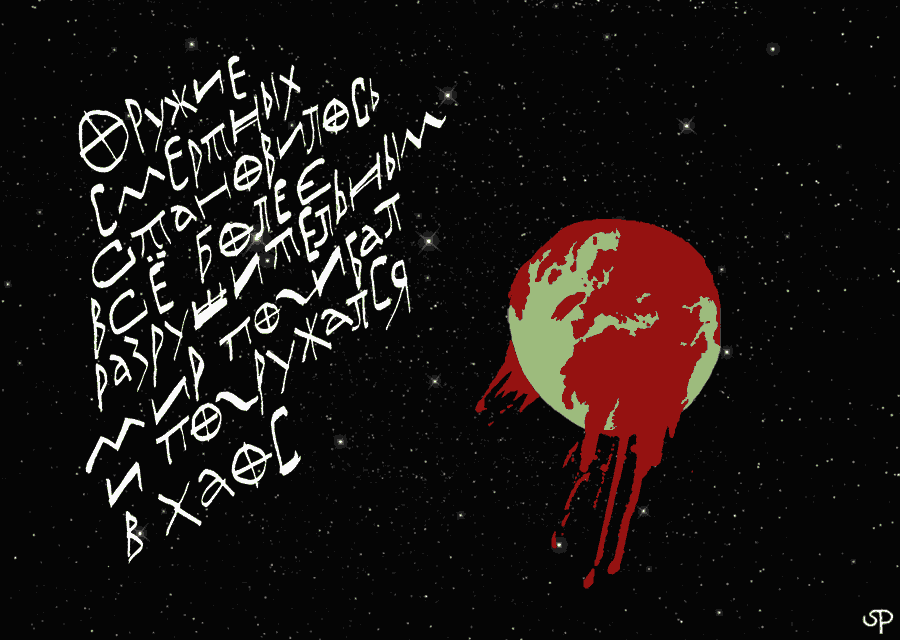 Оружие
смертных
становилось
всё более
разрушительным
мир погибал
и погружался
в хаос
SP